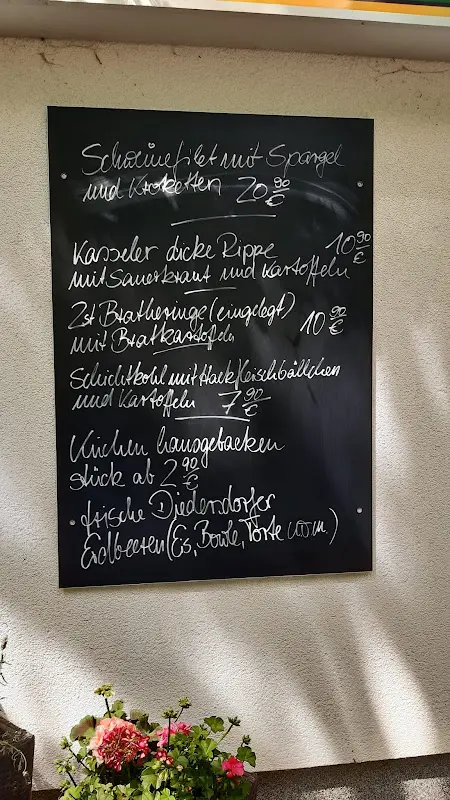 Schweinefilet mit Spargel
und Kroketten 20 90 €
Kasseler dicke Rippe 10 90 €
mit Sauerkraut und Kartoffeln
2 St Bratheringe (eingelegt)
mit Bratkartofeln 10 90 €
Schichtkohl mit Hackfleischbällchen
und Kartoffeln 7 90 €
Kuchen hausgebacken
stück ab 2 90 €
frische Diedersdorfer
Erdbeeren (Eis, Bowle, Torte u.v.m.)